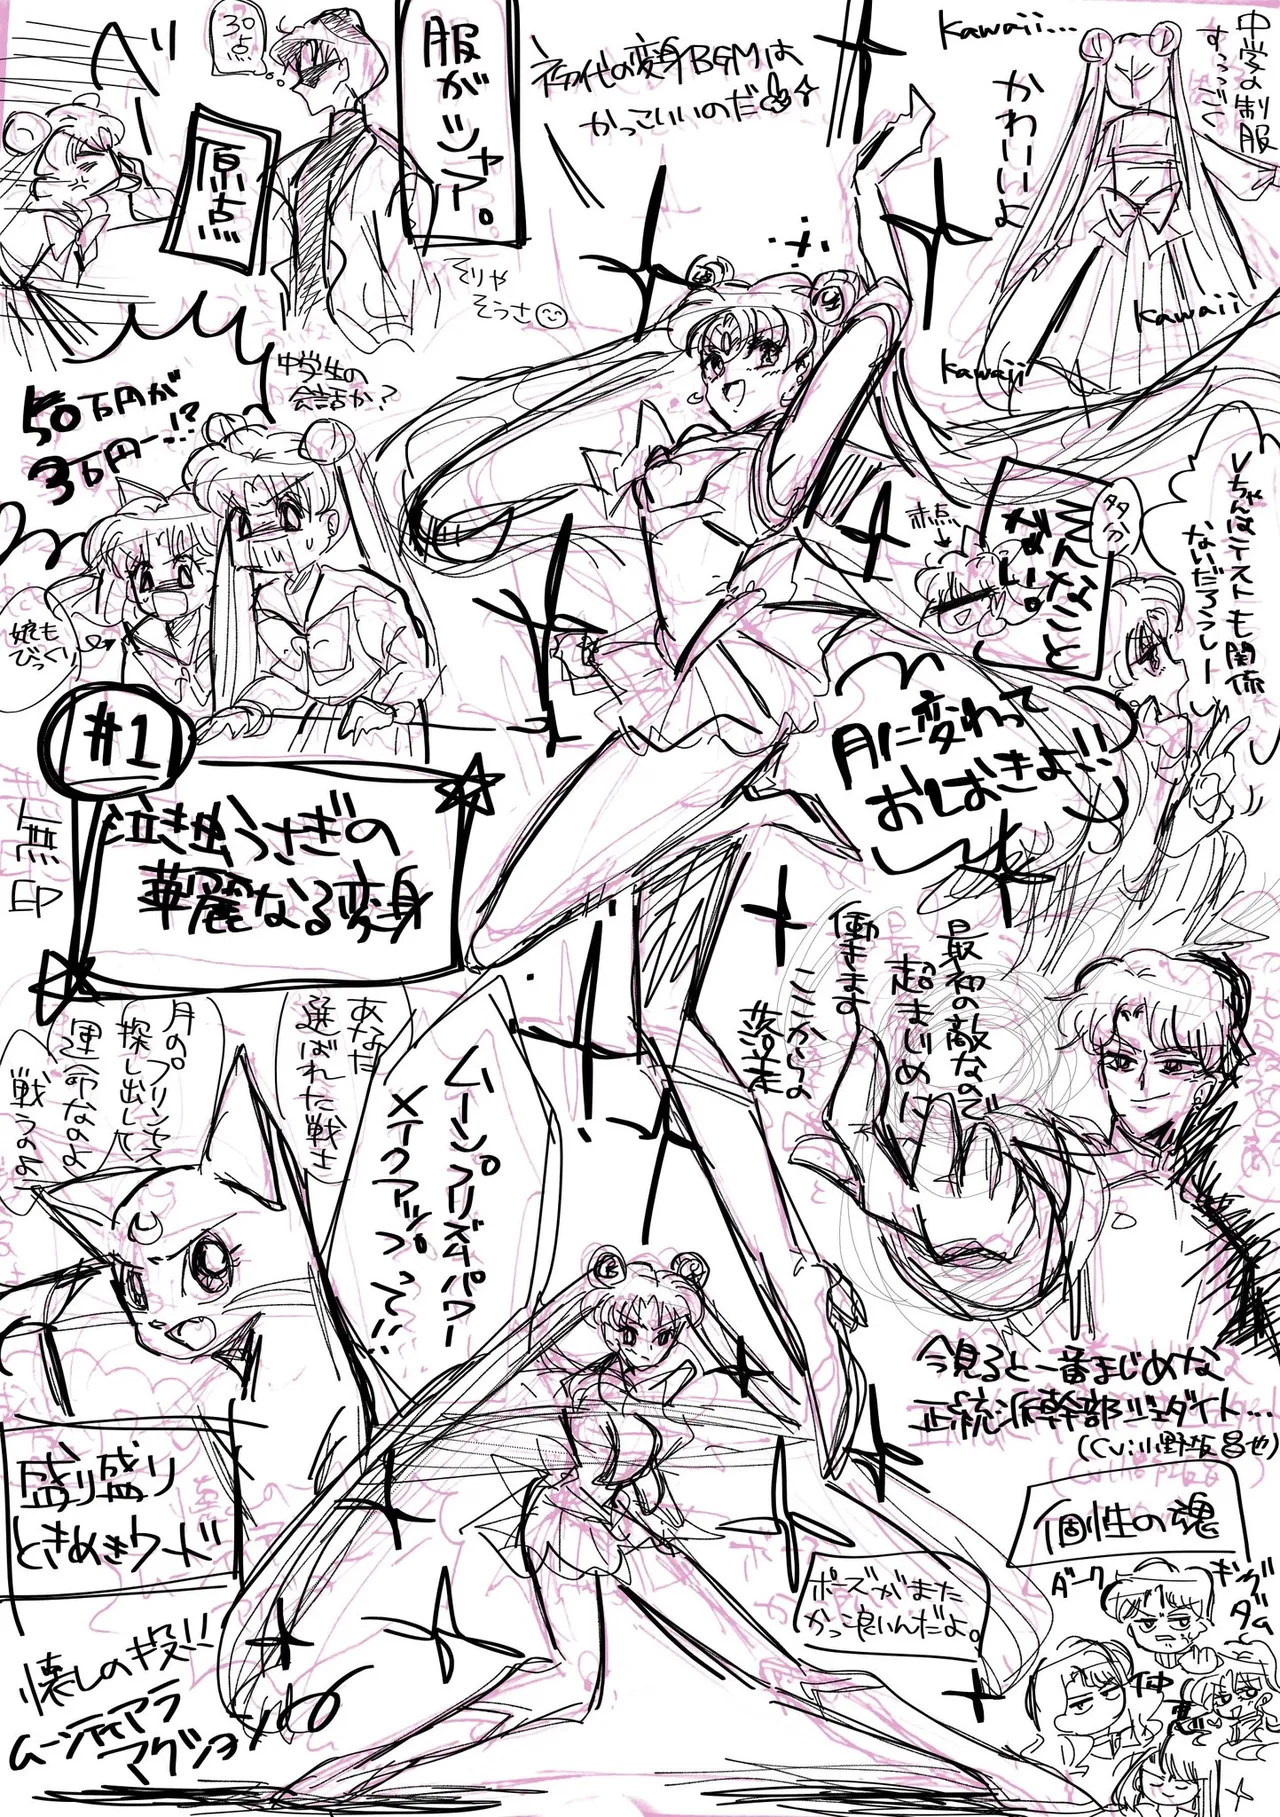 中学の制服
すっっごく
かわいーよ
kawaii...
kawaii
kawaii
初代の変身BGMは
かっこいいのだ
服がシャア。
そりゃ
そうさ
30点
原点
50万円が
3万円ー!?
中学生の
会話か?
娘も
びっくり
Vちゃんはテストも関係
ないだろうしー
多分
そんなこと
ない。
赤点
月に変わって
おしおきよ!!
#1
泣き虫うさぎの
華麗なる変身
無印
最初の敵なので
超まじめに
働きます
ここからの
落差
あなた
選ばれた戦士
月のプリンセス
探し出して
運命なのよ
戦うのよ
ムーンプリズムパワー
メイクアップっ!!
今見ると一番まじめな
正統派幹部ジェダイト...
(CV:小野坂昌也)
盛り盛り
ときめきワード
懐しの技!!
ムーンティアラ
アクション
ポーズがまた
かっこ良いんだよ。
個性の塊
ダーク
キングダム
仲
悪